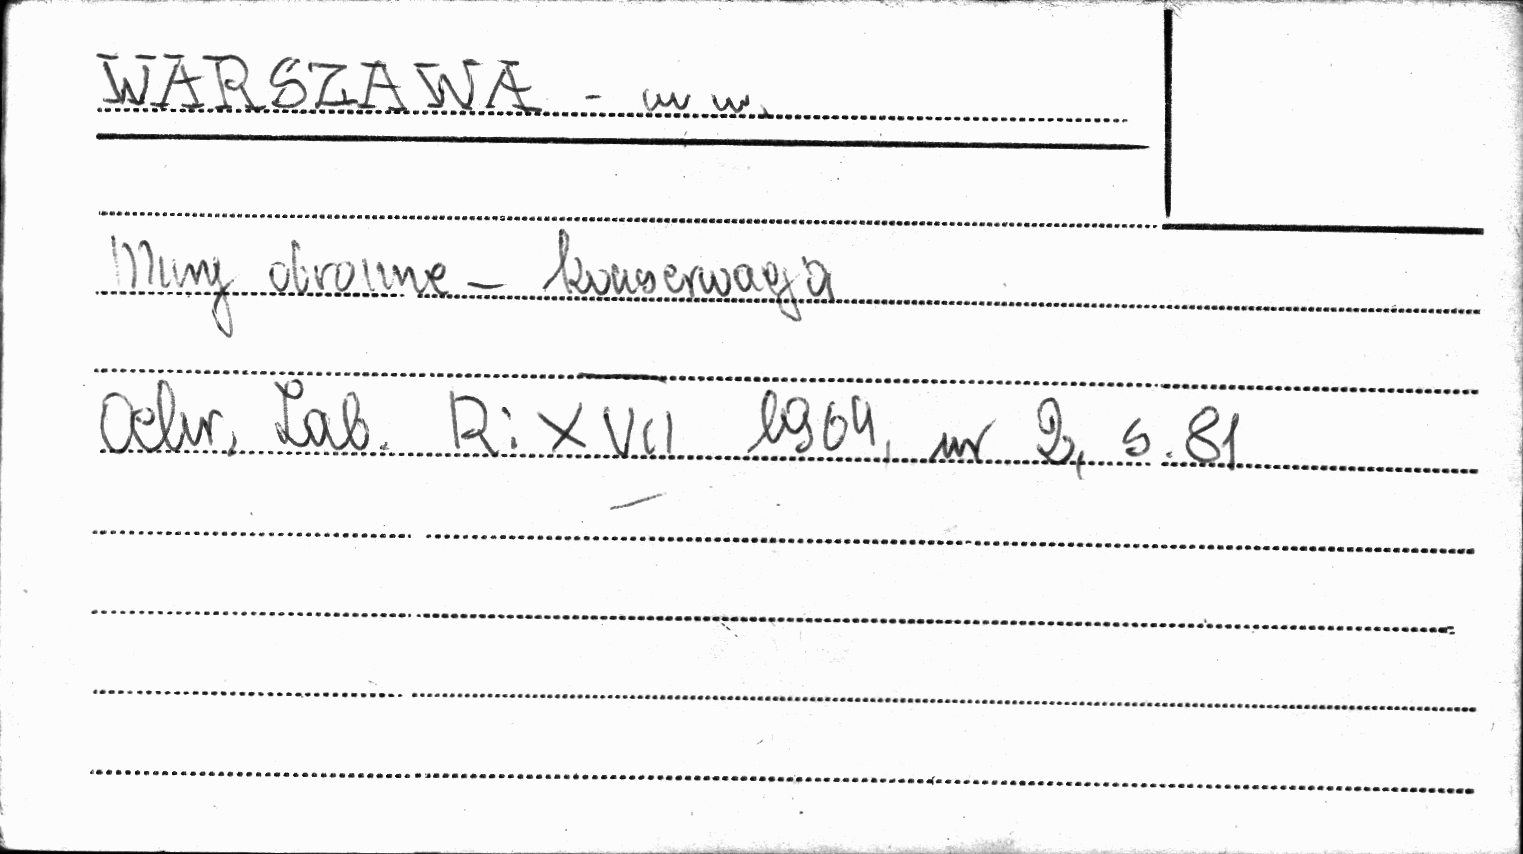 WARSZAWA - m w.
Mury obronne – konserwacja
Ochr. Zab. R: XVII 1964, nr 2, s. 81